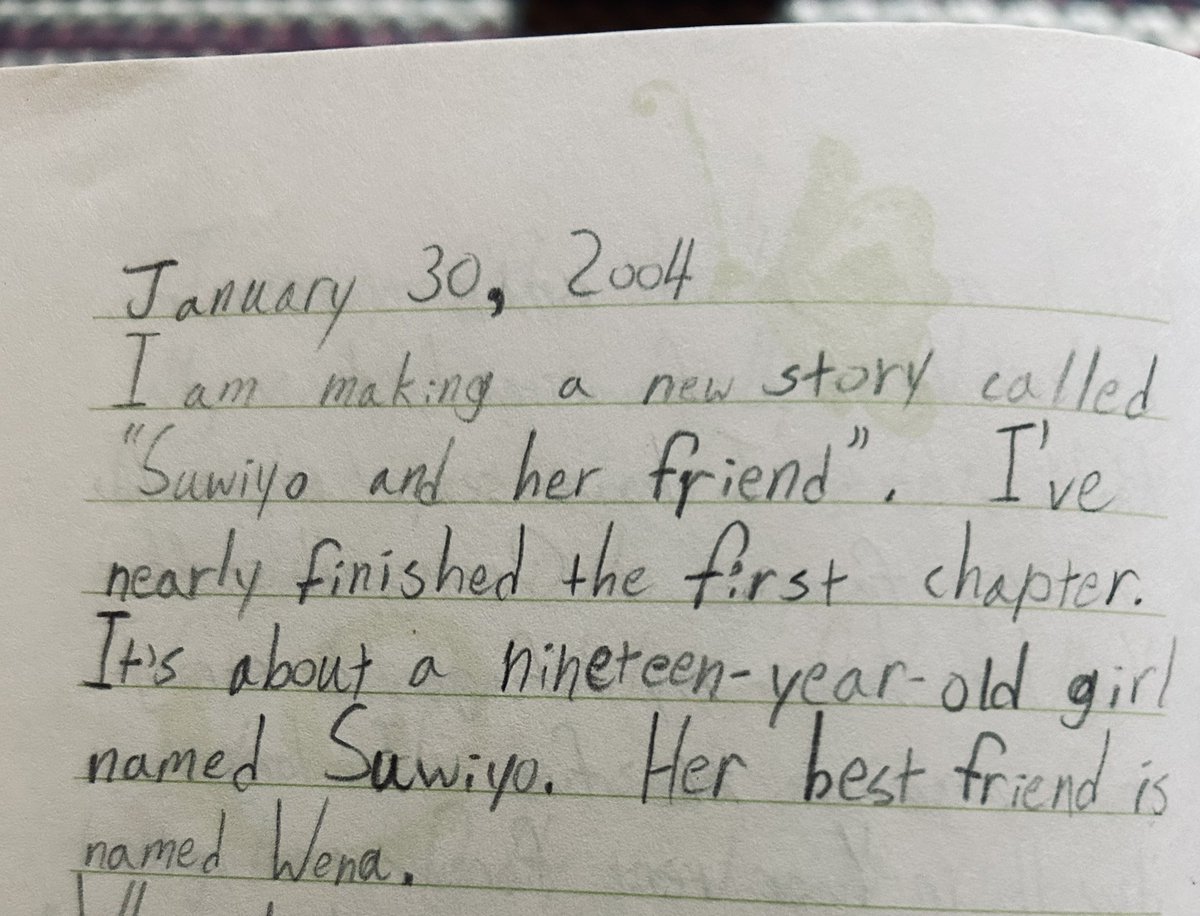 January 30, 2004
I am making a new story called
"Suwiyo and her friend". I've
nearly finished the first chapter.
It's about a nineteen-year-old girl
named Suwiyo. Her best friend is
named Wena.